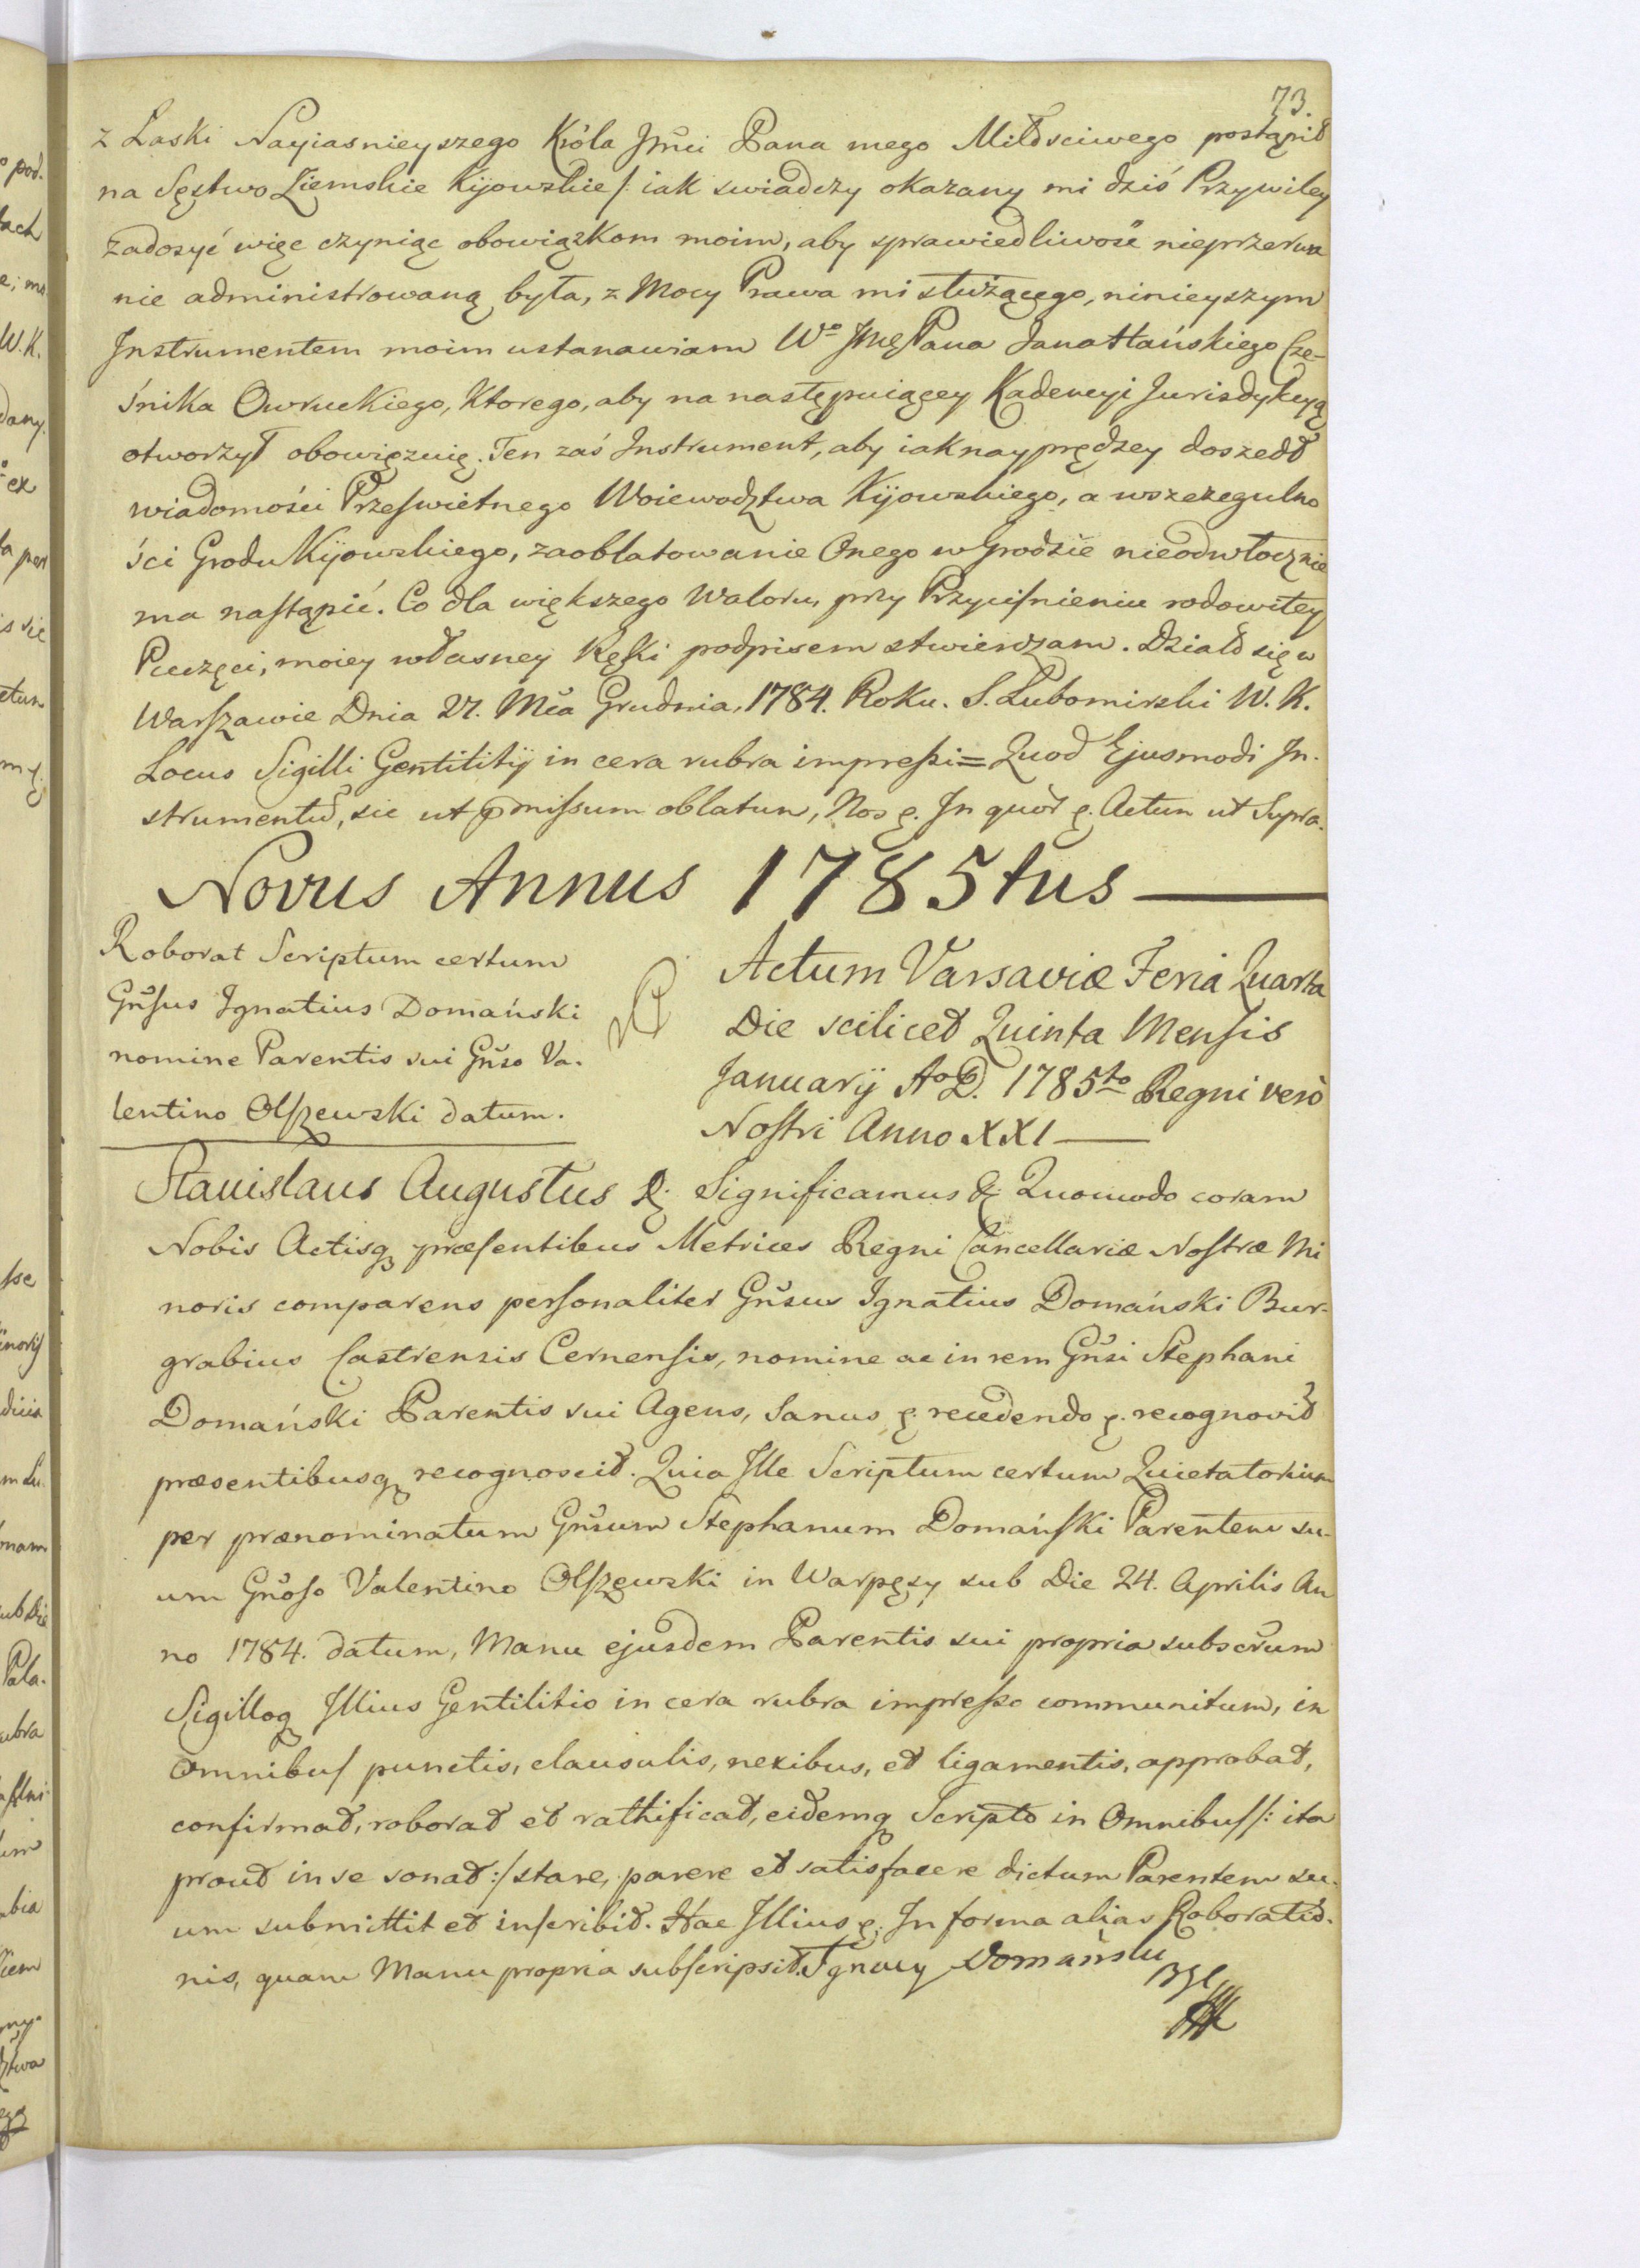 73.
z Łaski Nayiasnieyszego Króla Jmci Pana mego Miłościwego postąpił
na Sęstwo Ziemskie Kijowskie /: iak swiadczy okazany mi dziś Przywiley
zadosyć więc czyniąc obowiązkom moim, aby sprawiedliwość nieprzerwa
nie administrowaną była, z Mocy Prawa mi służącego, ninieyszym
Instrumentem moim ustanawiam Wo Jmę Pana Jana Hańskiego Cze-
śnika Owruckiego, Ktorego, aby na następuiącey Kadencyi Jurisdykcyą
otworzył obowięzuię. Ten zaś Instrument, aby iaknayprędzey doszedł
wiadomości Przeswietnego Woiewodztwa Kijowskiego, a wszczegulno
ści Grodu Kijowskiego, zaoblatowanie Onego w Grodzie nieodwłocznie
ma nastąpić. Co dla większego Waloru, przy Przyciśnieniu rodowitey
Pieczęci, moiey własney Ręki podpisem stwierdzam. Działo się w
Warszawie Dnia 27. Mca Grudnia, 1784. Roku. S. Lubomirski W. K.
Locus Sigilli Gentilitij in cera rubra impressi = Quod Ejusmodi In-
strumentu, sic ut pmissum oblatum, Nos &. In quor &. Actum ut Supra.
Novus Annus 1785tus
Roborat Scriptum certum
Gnsus Ignatius Domański
nomine Parentis sui Gnso Va-
lentino Olszewski datum.
Actum Varsaviæ Feria Quarta
Die scilicet Quinta Mensis
Januarij Ao D. 1785to Regni verò
Nostri Anno XXI
Stanislaus Augustus &. Significamus &. Quomodo coram
Nobis Actisq præsentibus Metrices Regni Cancellariæ Nostræ Mi
noris comparens personaliter Gnsus Ignatius Domański Bur-
grabius Castrensis Cernensis, nomine ac in rem Gnsi Stephani
Domański Parentis sui Agens, Sanus &. recedendo &. recognovit
præsentibusq recognoscit. Quia Ille Scriptum certum Quietatorium
per prænominatum Gnsum Stephanum Domański Parentem su-
um Gnoso Valentino Olszewski in Warpęsy sub Die 24. Aprilis An
no 1784. datum, Manu ejusdem Parentis sui propria subscrum
Sigilloq Illius Gentilitio in cera rubra impresso communitum, in
Omnibus punctis, clausulis, nexibus, et ligamentis, approbat,
confirmat, roborat et rathificat, eidemq Scripto in Omnibus /: ita
prout in se sonat :/ stare, parere et satisfacere dictum Parentem su-
um submittit et inscribit. Hac Illius &. In forma alias Roboratio-
nis, quam Manu propria subscripsit. Ignacy Domański